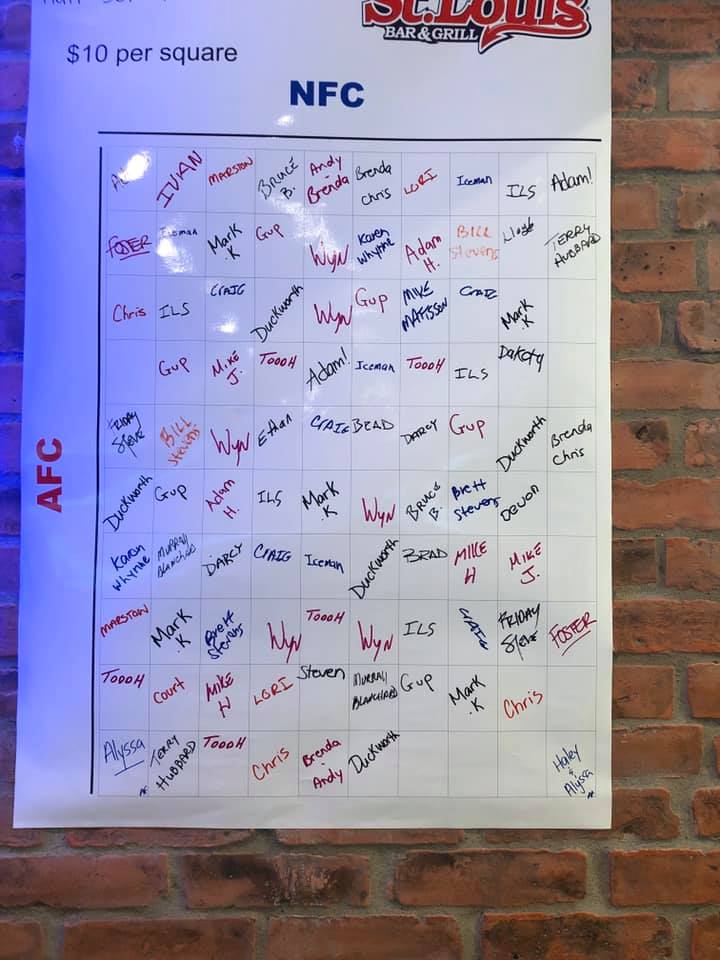 St.Louis
BAR & GRILL
$10 per square
NFC
AFC
IVIAN MARSTON BRUCE B. Andy + Brenda Brenda Chris LORI Iceman ILS Adam!
FOSTER Iceman Mark K Gup Wyn Karen Whynne Adam H. BILL Stevens TERRY HUBBARD
Chris ILS CRAIG Duckworth Wyn Gup MIKE MATTSSON CRAIG Mark K
Gup MIKE J. TODDH Adam! Iceman TODDH ILS Dakota
FRIDAY Steve BILL Stevens Wyn Ethan CRAIG BRAD DARCY Gup Duckworth Brenda Chris
Duckworth Gup Adam H. ILS Mark K Wyn BRUCE B. Brett Stevens DEVON
Karen Whynne MURRAY BLANCHARD DARCY CRAIG Iceman Duckworth BRAD MIKE H MIKE J.
MARSTON Mark K Brett Stevens Wyn TODDH Wyn ILS CRAIG FRIDAY Steve FOSTER
TODDH Court MIKE H LORI Steven MURRAY BLANCHARD Gup Mark K Chris
Alyssa TERRY HUBBARD TODDH Chris Brenda + Andy Duckworth Haley & Alyssa